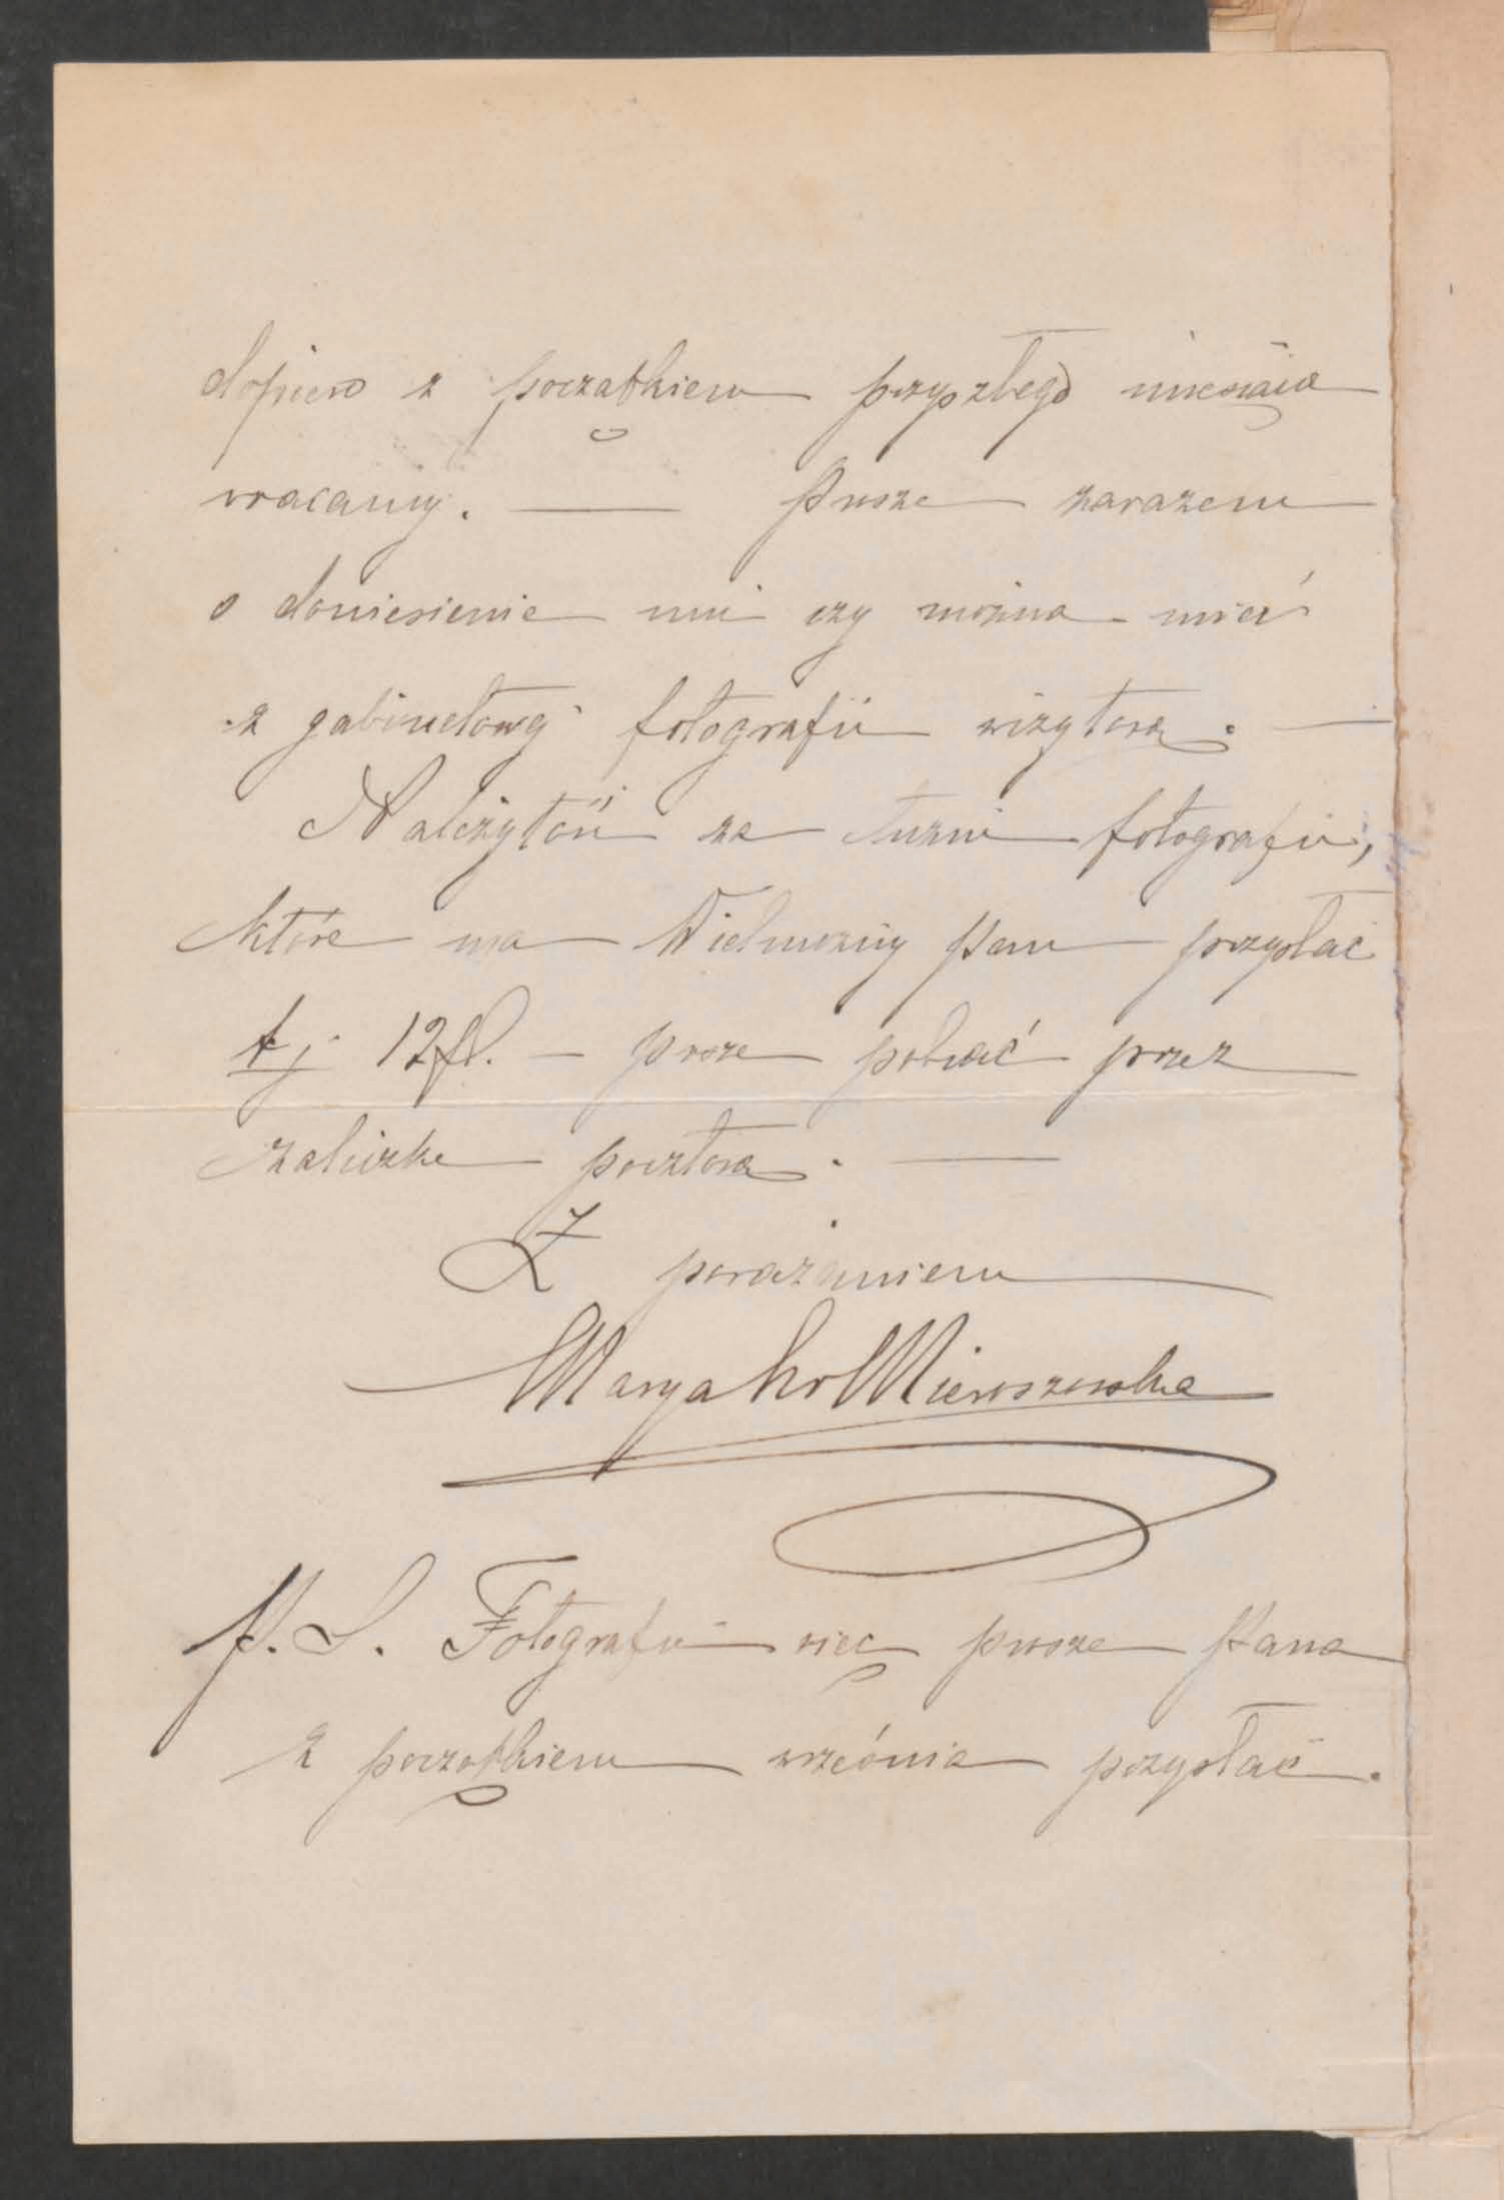 dopiero z początkiem przyszłego miesiąca
wracamy. — Prosze zarazem
o doniesienie mi czy można mieć
z gabinetowej fotografii wizytową. —
Należytość za tuzin fotografii,
które ma Wielmożny Pan przysłać
tj 12 fl. — prosze pobrać przez
zaliczke pocztową. —
Z poważaniem
Marya hr Mieroszowska
P. S. Fotografie więc prosze Pana
z początkiem września przysłać.